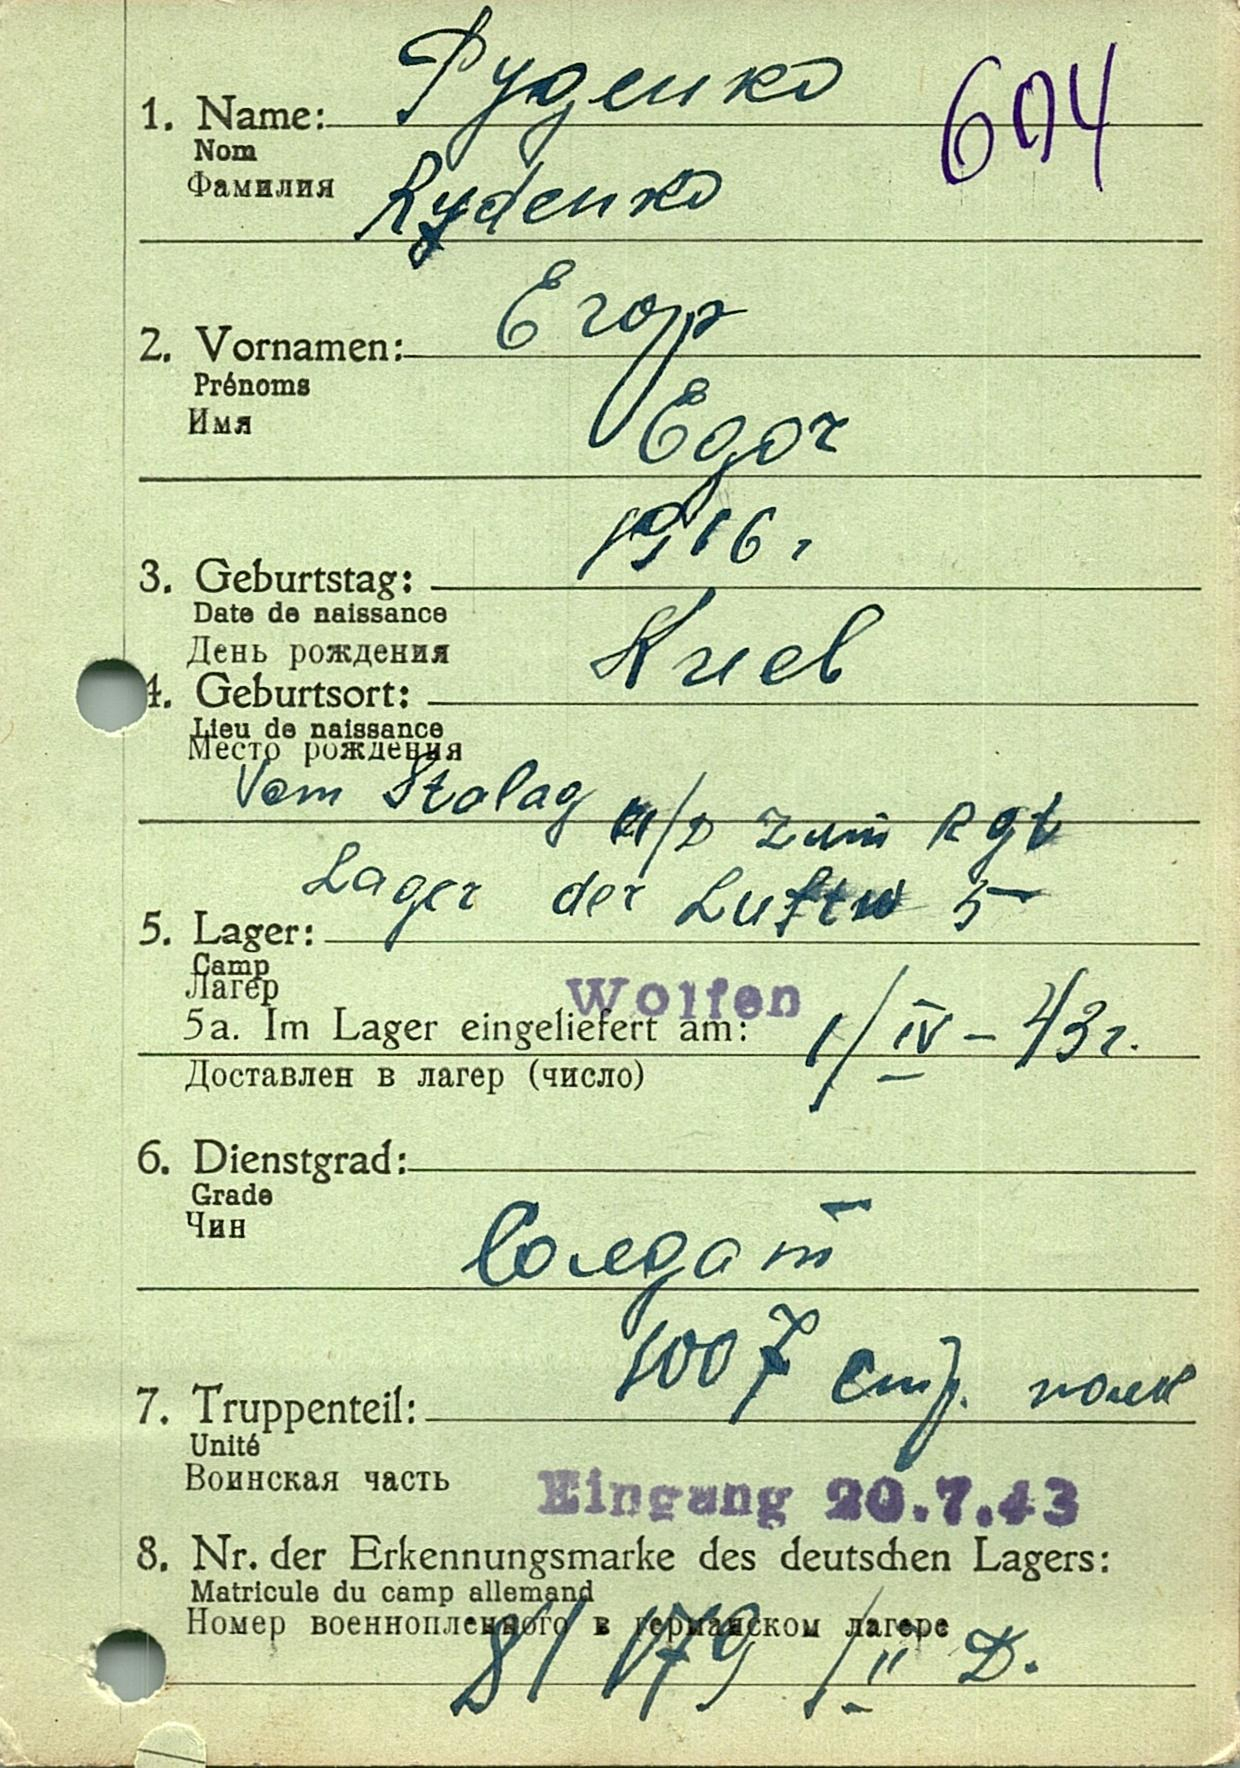 Руденко
1. Name:
604
Nom
Фамилия
Rudenko
Егор
2. Vornamen:
Prénoms
Имя
Egor
1916 г
3. Geburtstag:
Date de naissance
День рождения
Киев
4. Geburtsort:
Lieu de naissance
Место рождения
Vom Stalag II/D zum Rgt
Lager der Luftw 5
5. Lager:
Camp
Лагер
Wolfen
5a. Im Lager eingeliefert am: 1/IV-43г.
Доставлен в лагер (число)
6. Dienstgrad:
Grade
Чин
Солдат
1007 стр. полк
7. Truppenteil:
Unité
Воинская часть
Eingang 20.7.43
8. Nr. der Erkennungsmarke des deutschen Lagers:
Matricule du camp allemand
Номер военнопленного в германском лагере
81179/II D.